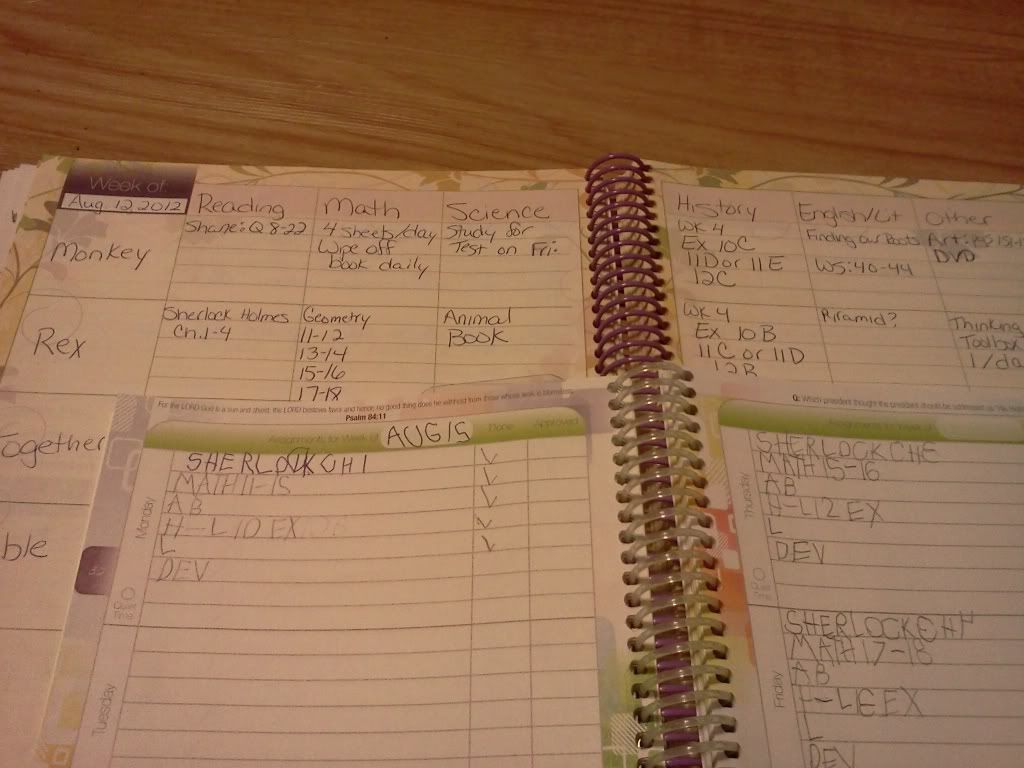 Week of
Aug 12 2012
Reading
Math
Science
History
English/Lit
Other
Monkey
Shane: Q 8-22
4 sheets/day
Wipe off
book daily
Study for
Test on Fri.
WK 4
Ex 10C
11D or 11E
12C
Finding our Roots
WS: 40-44
Art:
DVD
Rex
Sherlock Holmes
Ch. 1-4
Geometry
11-12
13-14
15-16
17-18
Animal
Book
WK 4
Ex 10B
11C or 11D
12B
Piramid?
Thinking
Toolbox
1/da
Together
ble
For the LORD God is a sun and shield; the LORD bestows favor and honor; no good thing does he withhold from those whose walk is blameless.
Psalm 84:11
Assignments for Week of
AUG 15
Done
Approved
Monday
SHERLOCK CH 1
MATH 11-15
AB
H-L 10 EX
L
DEV
Tuesday
Q: Which president thought the president should be addressed as
Assignments for Week of
Thursday
SHERLOCK CH
MATH 15-16
AB
H-L 12 EX
L
DEV
Friday
SHERLOCK CH
MATH 17-18
AB
H-L EX
L
DEV